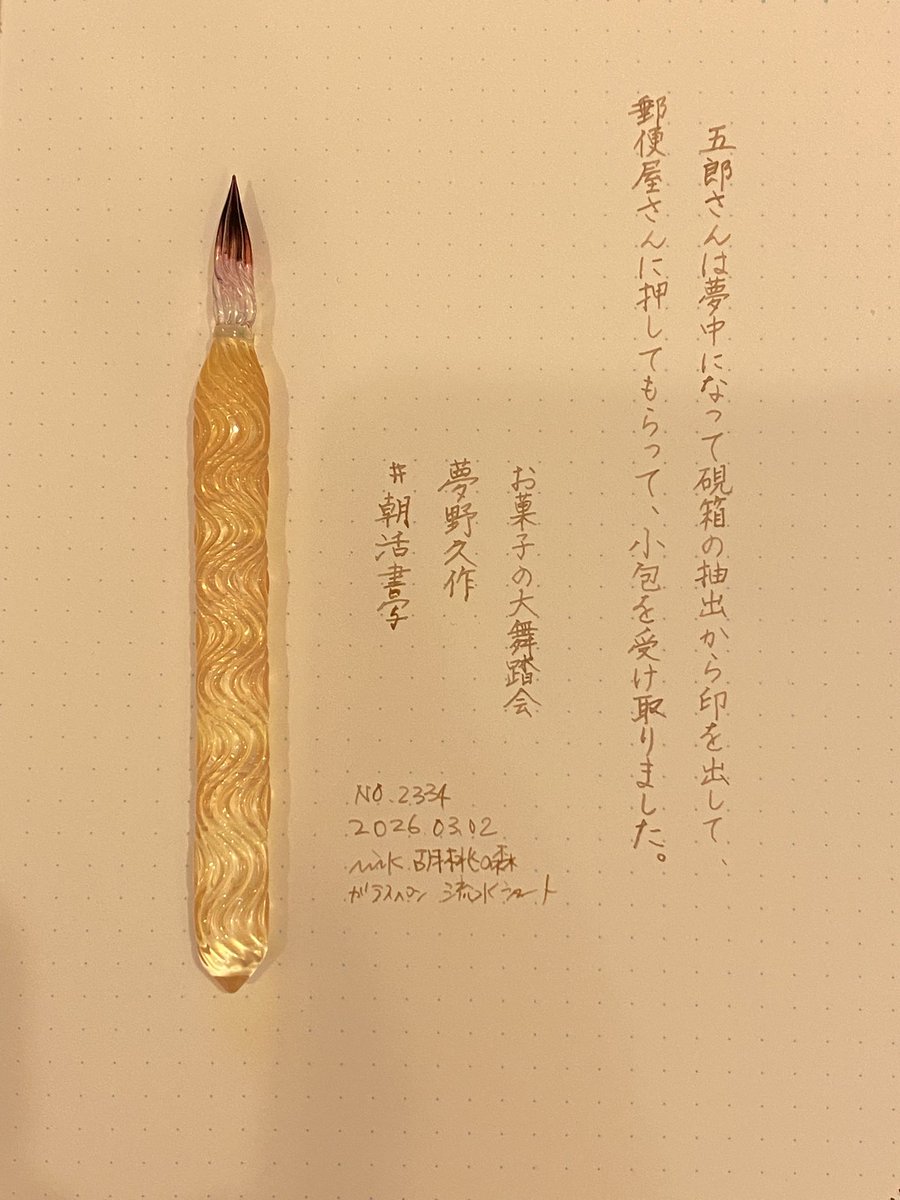 五郎さんは夢中になって硯箱の抽出から印を出して、
郵便屋さんに押してもらって、小包を受け取りました。
お菓子の大舞踏会
夢野久作
#朝活書写
NO.2334
2026.03.02
ink 胡桃の森
ガラスペン 流水ショート